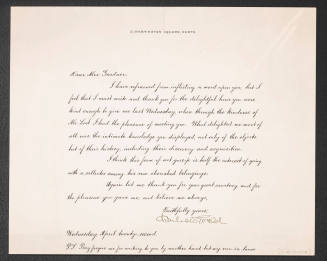 Dear Mrs. Gardner:
I have refrained from inflicting a word upon you, but I
feel that I must write and thank you for the delightful hours you were
kind enough to give me last Wednesday, when through the kindness of
Mr. I had the pleasure of meeting you. What delighted me most of
all was the intimate knowledge you displayed, not only of the objects
but of their history, including their discovery and acquisition.
I think this form of art gossip is half the interest of going
with a collector among his own cherished belongings.
Again let me thank you for your great courtesy and for
the pleasure you gave me, and believe me always,
Faithfully yours,
Wednesday April twenty-second.
P.S. Pray forgive me for writing to you by another hand but my own is lame